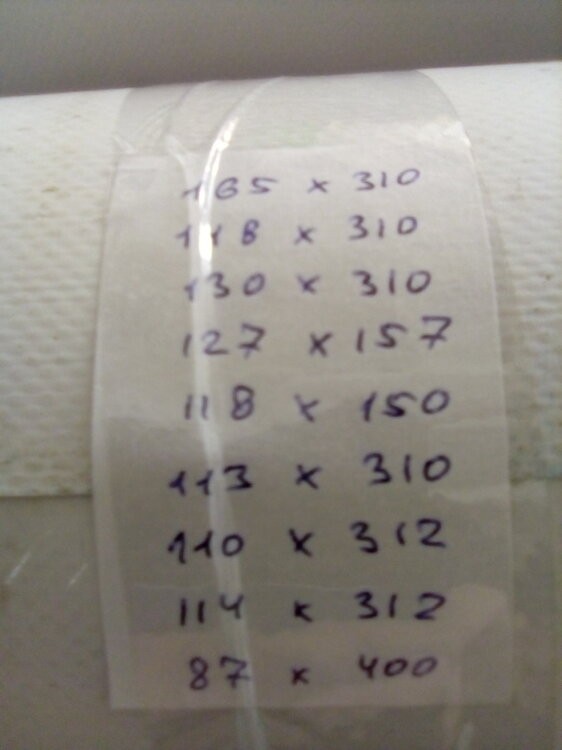 165 x 310
118 x 310
130 x 310
127 x 157
118 x 150
113 x 310
110 x 312
114 x 312
87 x 400